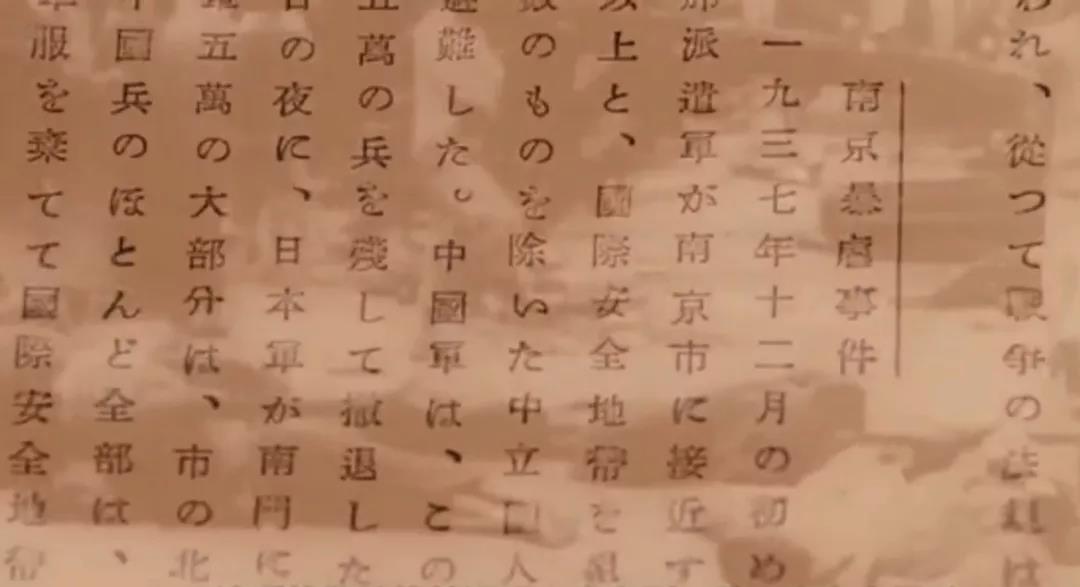 われ、從つて戰爭の法規は
南京暴虐事件
一九三七年十二月の初め
派遣軍が南京市に接近す
以上と、國際安全地帶を
数のものを除いた中立国人
避難した。中國軍は、この
五萬の兵を殘して撤退した
の夜に、日本軍が南門に
五萬の大部分は、市の北
中國兵のほとんど全部は、
服を棄てて國際安全地帶